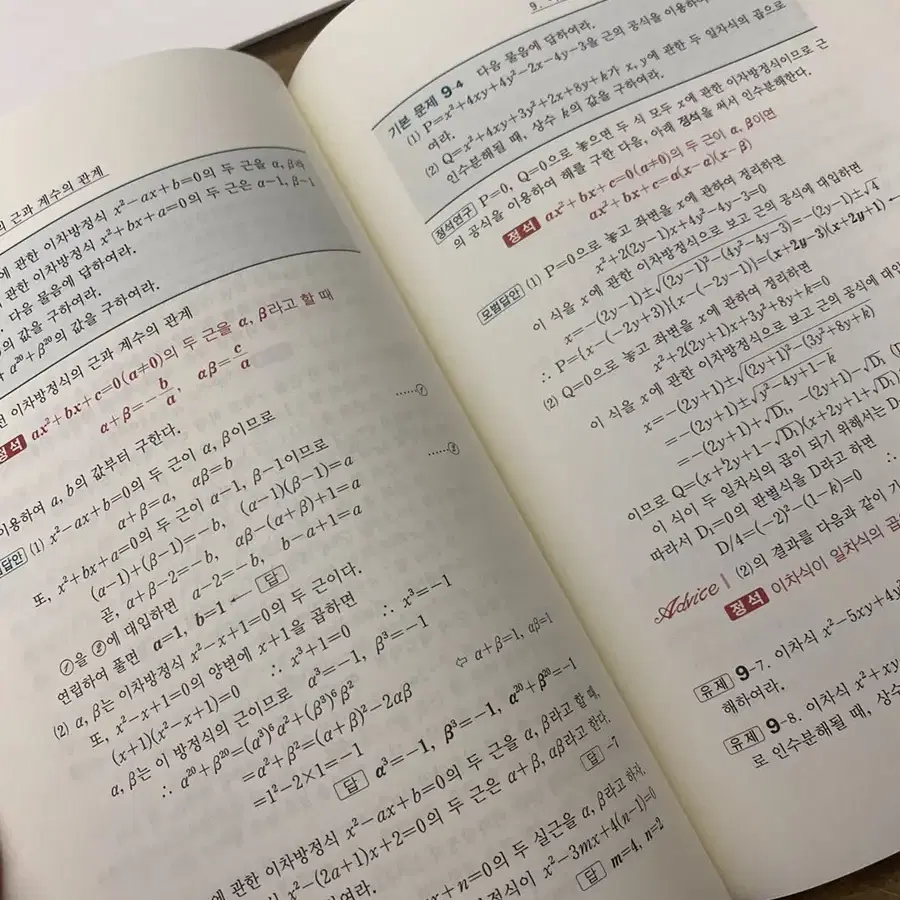 의 근과 계수의 관계
에 관한 이차방정식 x²-ax+b=0의 두 근을 α, β라
관한 이차방정식 x²+bx+a=0의 두 근은 α-1, β-1
다음 물음에 답하여라.
의 값을 구하여라.
α²⁰+β²⁰의 값을 구하여라.
이차방정식의 근과 계수의 관계
정석 ax²+bx+c=0(a≠0)의 두 근을 α, β라고 할 때
α+β=-b/a, αβ=c/a
이용하여 a, b의 값부터 구한다.
(1) x²-ax+b=0의 두 근이 α, β이므로
α+β=a, αβ=b ……①
또, x²+bx+a=0의 두 근이 α-1, β-1이므로
(α-1)+(β-1)=-b, (α-1)(β-1)=a
곧, α+β-2=-b, αβ-(α+β)+1=a ……②
①을 ②에 대입하면 a-2=-b, b-a+1=a
연립하여 풀면 a=1, b=1 ← 답
(2) α, β는 이차방정식 x²-x+1=0의 두 근이다.
또, x²-x+1=0의 양변에 x+1을 곱하면
(x+1)(x²-x+1)=0 ∴ x³+1=0 ∴ x³=-1
α, β는 이 방정식의 근이므로 α³=-1, β³=-1
∴ α²⁰+β²⁰=(α³)⁶α²+(β³)⁶β²
=α²+β²=(α+β)²-2αβ ⇦ α+β=1, αβ=1
=1²-2×1=-1
답 α³=-1, β³=-1, α²⁰+β²⁰=-1
에 관한 이차방정식 x²-ax+b=0의 두 근을 α, β라고 할 때,
x²-(2a+1)x+2=0의 두 근은 α+β, αβ라고 한다.
하여라. 답 -7
x+n=0의 두 실근을 α, β라고 하자.
정식이 x²-3mx+4(n-1)=0
답 m=4, n=2
9.
기본 문제 9-4 다음 물음에 답하여라.
(1) P=x²+4xy+4y²-2x-4y-3을 근의 공식을 이용하여
여라.
(2) Q=x²+4xy+3y²+2x+8y+k가 x, y에 관한 두 일차식의 곱으로
인수분해될 때, 상수 k의 값을 구하여라.
정석연구 P=0, Q=0으로 놓으면 두 식 모두 x에 관한 이차방정식이므로 근
의 공식을 이용하여 해를 구한 다음, 아래 정석을 써서 인수분해한다.
정석 ax²+bx+c=0(a≠0)의 두 근이 α, β이면
ax²+bx+c=a(x-α)(x-β)
모범답안 (1) P=0으로 놓고 좌변을 x에 관하여 정리하면
x²+2(2y-1)x+4y²-4y-3=0
이 식을 x에 관한 이차방정식으로 보고 근의 공식에 대입하면
x=-(2y-1)±√(2y-1)²-(4y²-4y-3)=-(2y-1)±√4
∴ P={x-(-2y+3)}{x-(-2y-1)}=(x+2y-3)(x+2y+1) ←
(2) Q=0으로 놓고 좌변을 x에 관하여 정리하면
x²+2(2y+1)x+3y²+8y+k=0
이 식을 x에 관한 이차방정식으로 보고 근의 공식에 대입
x=-(2y+1)±√(2y+1)²-(3y²+8y+k)
=-(2y+1)±√y²-4y+1-k
=-(2y+1)+√D₁, -(2y+1)-√D₁ (D₁
이므로 Q=(x+2y+1-√D₁)(x+2y+1+√D₁)
이 식이 두 일차식의 곱이 되기 위해서는 D₁
따라서 D₁=0의 판별식을 D라고 하면
D/4=(-2)²-(1-k)=0 ∴
Advice (2)의 결과를 다음과 같이 기
정석 이차식이 일차식의 곱
유제 9-7. 이차식 x²-5xy+4y
해하여라.
유제 9-8. 이차식 x²+xy
로 인수분해될 때, 상수